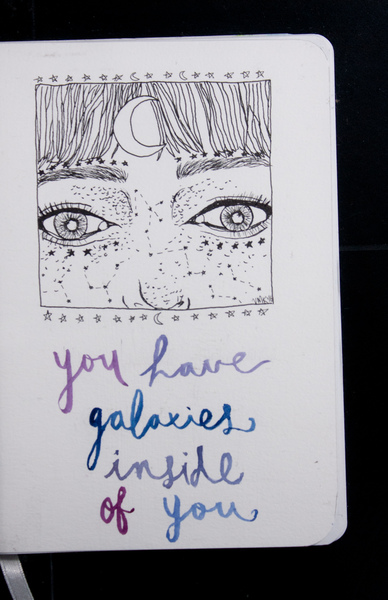 you have
galaxies
inside
of you